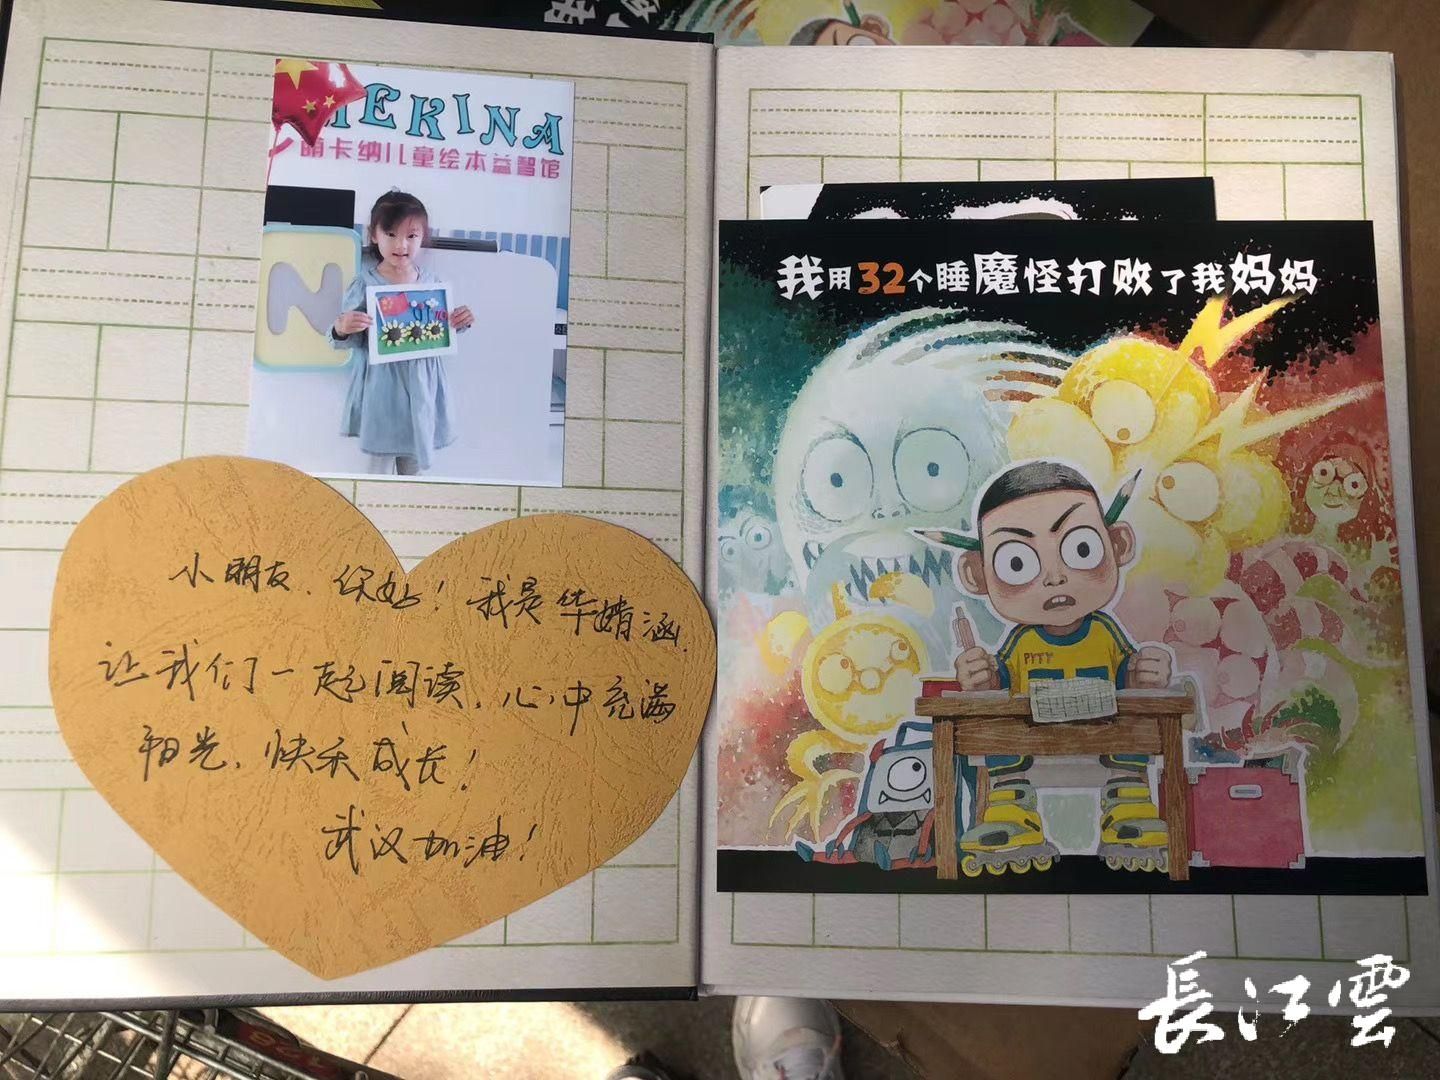 MEKINA
萌卡纳儿童绘本益智馆
N
小朋友、你好！我是华婧涵.
让我们一起阅读，心中充满
阳光，快乐成长！
武汉加油！
我用32个睡魔怪打败了我妈妈
PYTY
長江雲